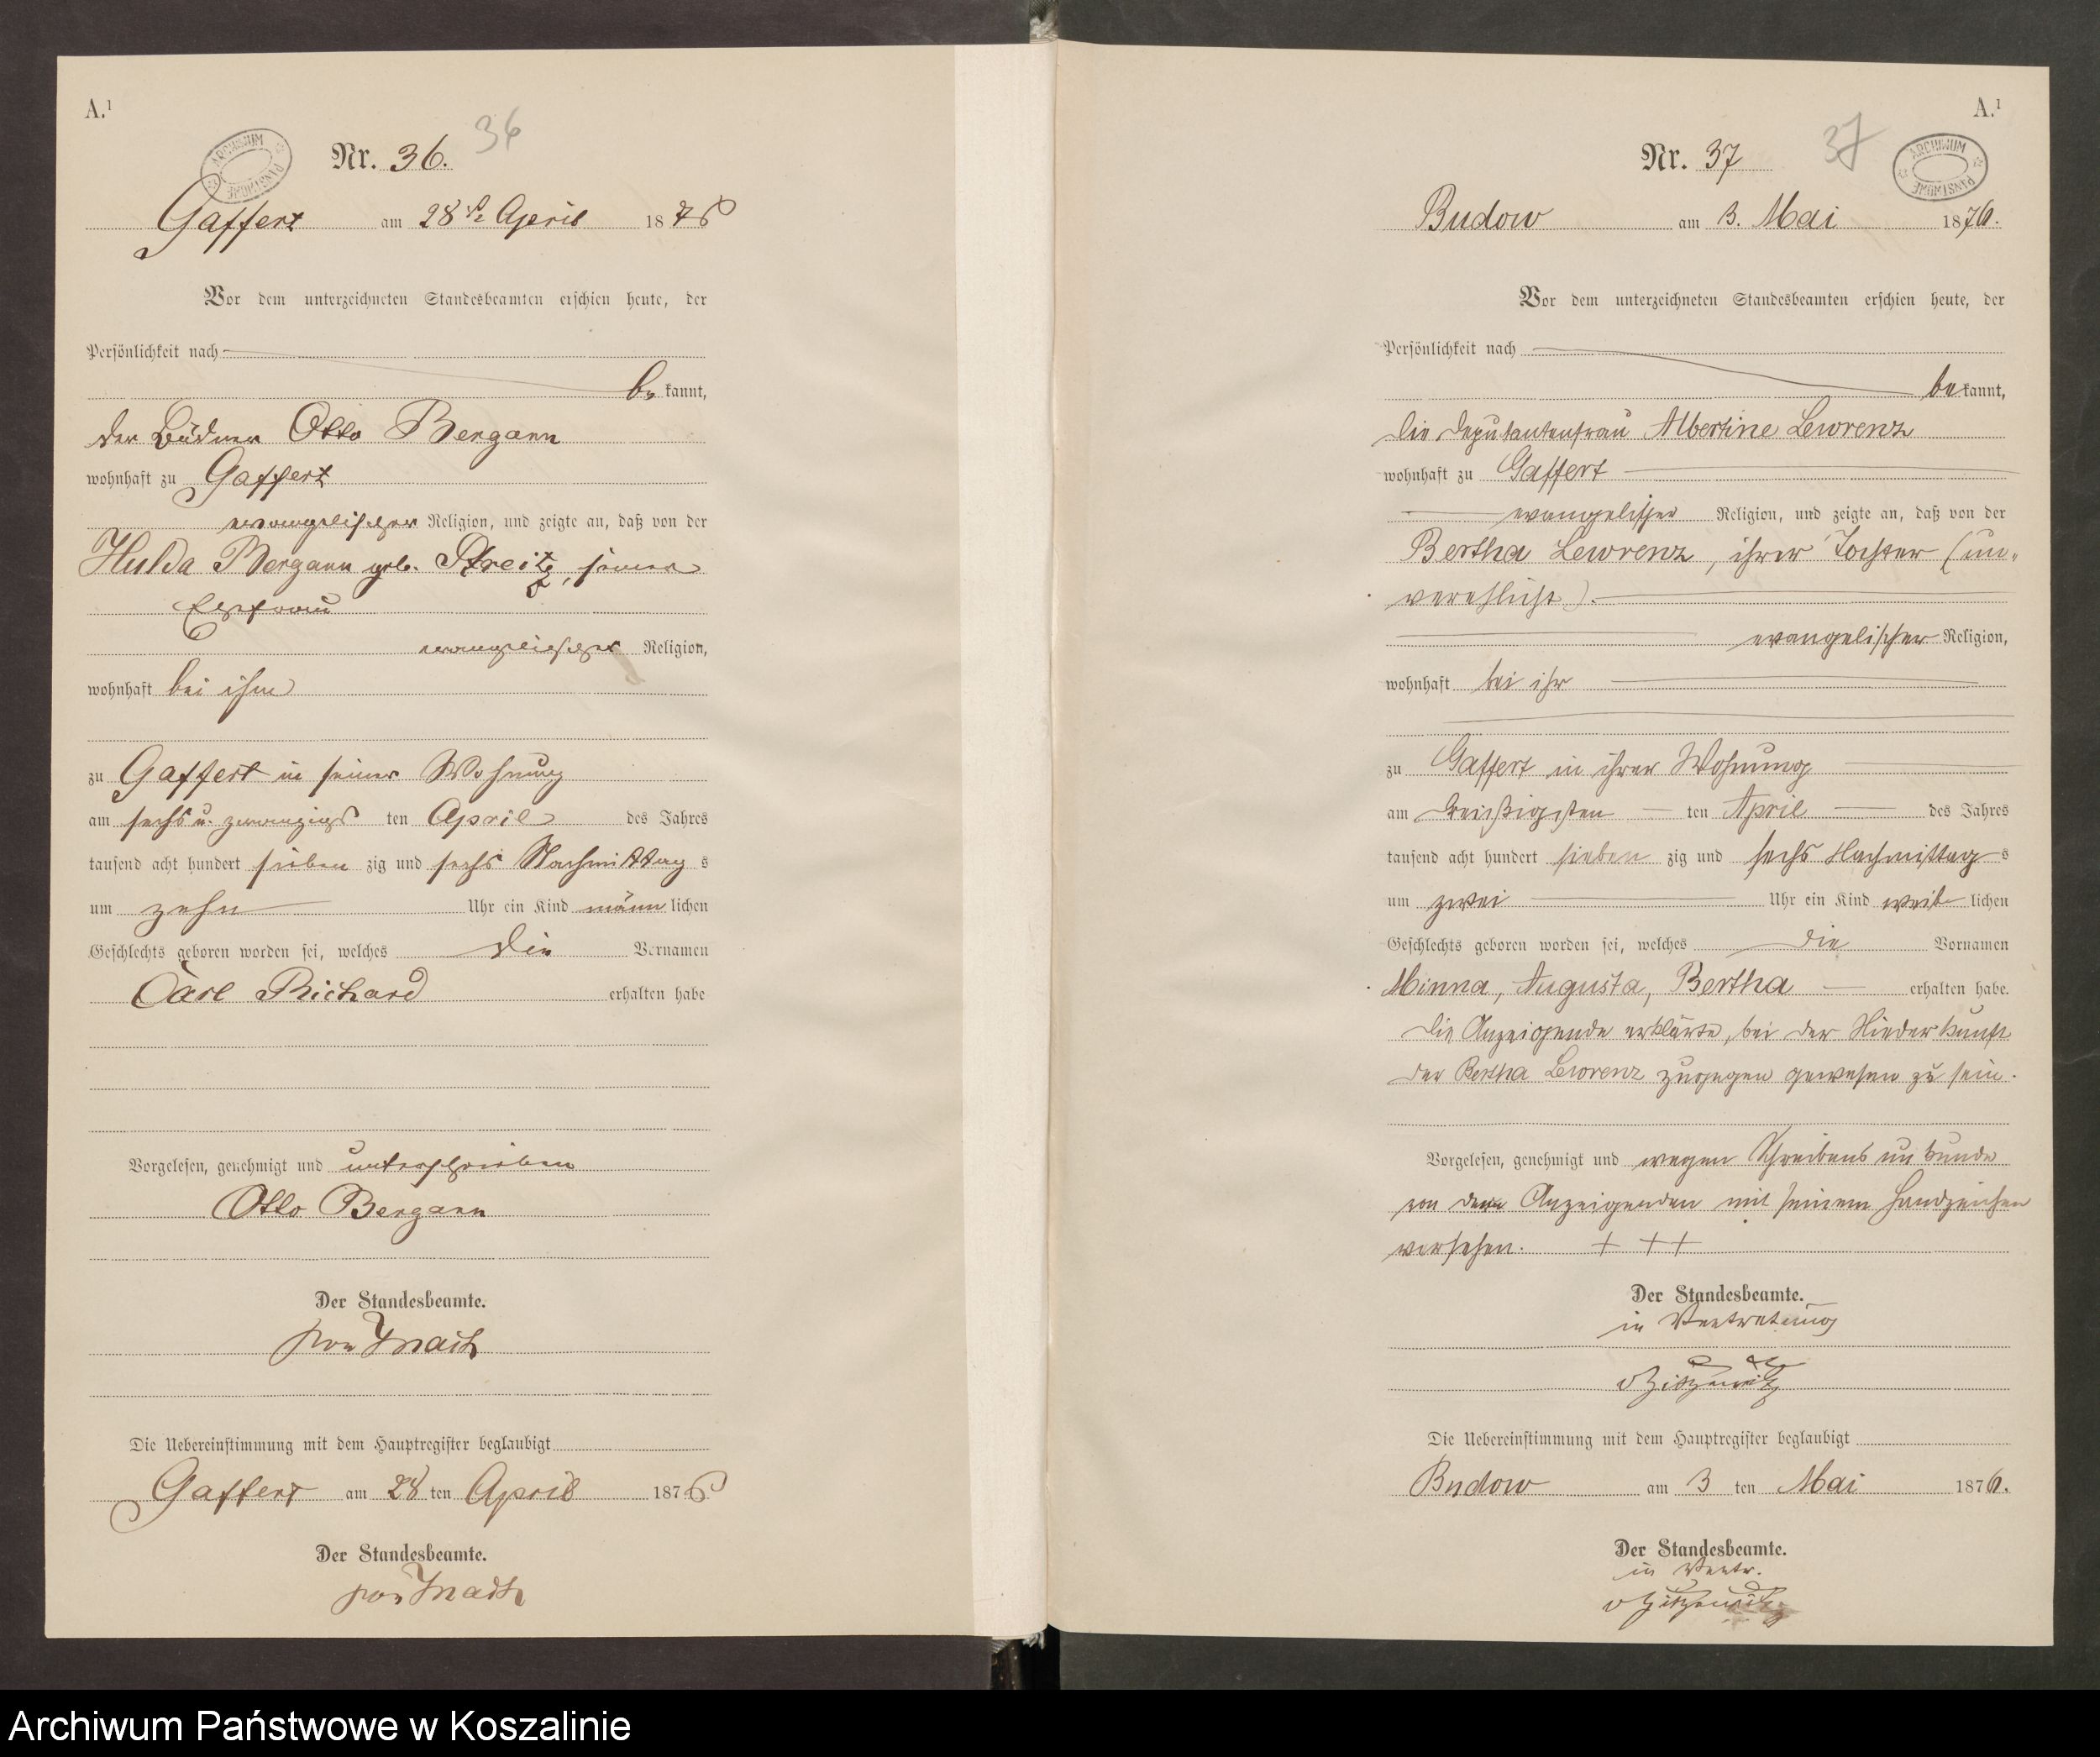 A.¹
ARCHIWUM PAŃSTWOWE
Nr. 36.
36
Gaffert am 28 April 1876
Vor dem unterzeichneten Standesbeamten erschien heute, der
Persönlichkeit nach
bekannt,
der Büdner Otto Bergann
wohnhaft zu Gaffert
evangelischer Religion, und zeigte an, daß von der
Hulda Bergann geb. Streitz, seiner
Ehefrau
evangelischer Religion,
wohnhaft bei ihm
zu Gaffert in seiner Wohnung
am sechs u. zwanzigs ten April des Jahres
tausend acht hundert sieben zig und sechs Nachmittag s
um zehn Uhr ein Kind männ lichen
Geschlechts geboren worden sei, welches die Vornamen
Carl Richard erhalten habe
Vorgelesen, genehmigt und unterschrieben
Otto Bergann
Der Standesbeamte.
von
Die Uebereinstimmung mit dem Hauptregister beglaubigt
Gaffert am 28 ten April 1876
Der Standesbeamte.
von
A.¹
ARCHIWUM PAŃSTWOWE
Nr. 37
37
Budow am 3. Mai 1876.
Vor dem unterzeichneten Standesbeamten erschien heute, der
Persönlichkeit nach
bekannt,
die Deputantenfrau Albertine Lewrenz
wohnhaft zu Gaffert
evangelischer Religion, und zeigte an, daß von der
Bertha Lewrenz, ihrer Tochter (un-
verehlicht).
evangelischer Religion,
wohnhaft bei ihr
zu Gaffert in ihrer Wohnung
am dreißigsten ten April des Jahres
tausend acht hundert sieben zig und sechs Nachmittag s
um zwei Uhr ein Kind weib lichen
Geschlechts geboren worden sei, welches die Vornamen
Minna, Augusta, Bertha erhalten habe.
Die Anzeigende erklärte, bei der Niederkunft
der Bertha Lewrenz zugegen gewesen zu sein.
Vorgelesen, genehmigt und wegen Schreibens unkunde
von dem Anzeigenden mit seinem Handzeichen
versehen. + + +
Der Standesbeamte.
in Vertretung
v Zitzewitz
Die Uebereinstimmung mit dem Hauptregister beglaubigt
Budow am 3 ten Mai 1876.
Der Standesbeamte.
in Vertr.
v Zitzewitz
Archiwum Państwowe w Koszalinie